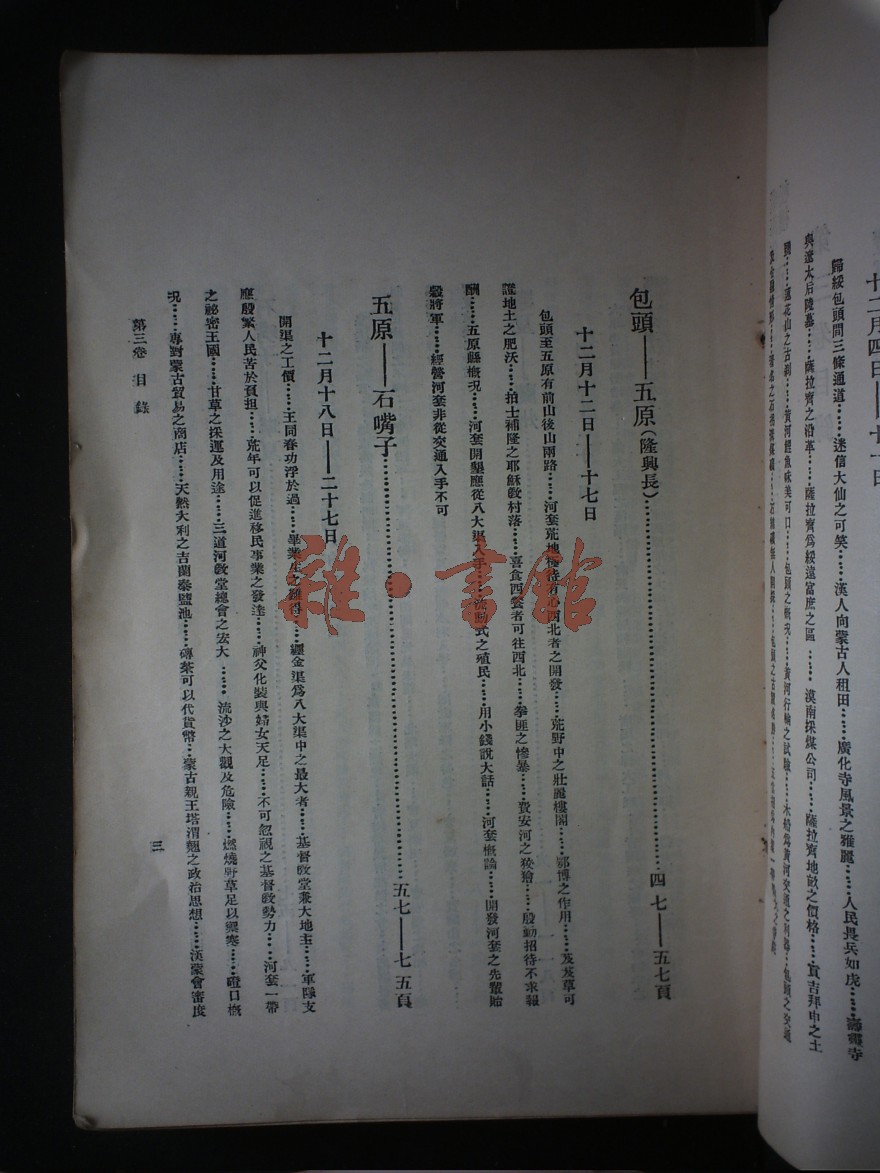 十二月四日——十一日
歸綏包頭間三條通道……迷信大仙之可笑……漢人向蒙古人租田……廣化寺風景之雅麗……人民畏兵如虎……壽靈寺
與遼太后陵墓……薩拉齊之沿革……薩拉齊爲綏遠富庶之區……漠南採煤公司……薩拉齊地畝之價格……實吉拜申之土
……蓮花山之古刹……黃河鯉魚味美可口……包頭之概況……黃河行輪之試驗……木船爲黃河交通之利器……包頭之交通
包頭——五原（隆興長）……四七——五七頁
十二月十二日——十七日
包頭至五原有前山後山兩路……河套荒地極待有心西北者之開發……荒野中之壯麗樓閣……鄂博之作用……芨芨草可
識地土之肥沃……拍士補隆之耶穌敎村落……喜食西餐者可往西北……拳匪之慘暴……費安河之狡獪……殷勤招待不求報
酬……五原縣概況……河套開墾應從八大渠入手……流動式之殖民……用小錢說大話……河套概論……開發河套之先輩貽
穀將軍……經營河套非從交通入手不可
五原——石嘴子……五七——七五頁
十二月十八日——二十七日
開渠之工價……王同春功浮於過……畢業生之難得……纏金渠爲八大渠中之最大者……基督敎堂兼大地主……軍隊支
應殷繁人民苦於負担……荒年可以促進移民事業之發達……神父化裝與婦女天足……不可忽視之基督敎勢力……河套一帶
之祕密王國……甘草之採運及用途……三道河敎堂總會之宏大……流沙之大觀及危險……燃燒野草足以禦寒……磴口概
況……專對蒙古貿易之商店……天然大利之吉蘭泰鹽池……磚茶可以代貨幣……蒙古親王塔渭趣之政治思想……漢蒙會審度
第三卷 目錄
三
雜·書館